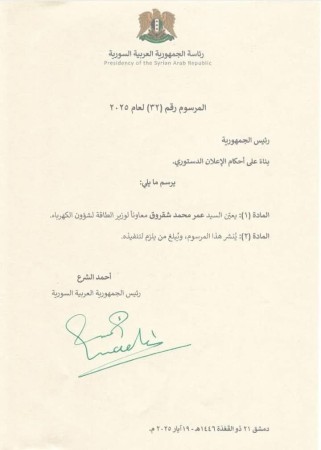 رئاسة الجمهورية العربية السورية
Presidency of the Syrian Arab Republic
المرسوم رقم (٣٢) لعام ٢٠٢٥
رئيس الجمهورية
بناءً على أحكام الإعلان الدستوري.
يرسم ما يلي:
المادة (١): يعيّن السيد عمر محمد شقروق معاوناً لوزير الطاقة لشؤون الكهرباء.
المادة (٢): يُنشر هذا المرسوم، ويُبلغ من يلزم لتنفيذه.
أحمد الشرع
رئيس الجمهورية العربية السورية
دمشق ٢١ ذو القعدة ١٤٤٦هـ - ١٩ أيار ٢٠٢٥ م.